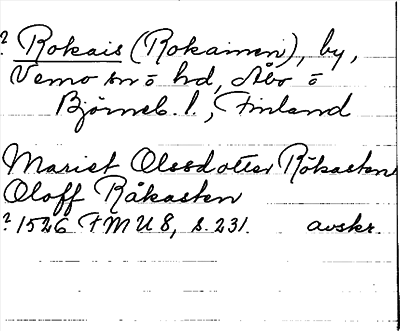 ? Rokais (Rokainen), by,
Vemo sn o hd, Åbo o
Björneb. l., Finland
Mariet Olssdotter Råkasten
Oloff Råkasten
? 1526 FMU 8, s. 231. avskr.